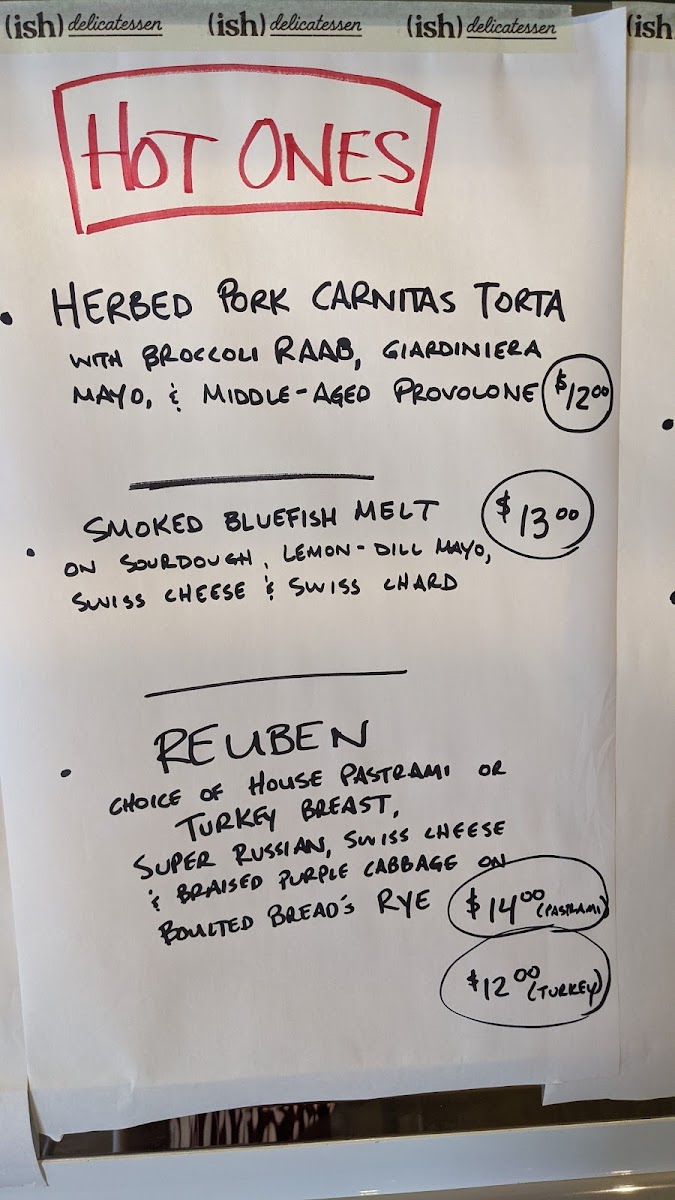 (ish) delicatessen (ish) delicatessen (ish) delicatessen (ish
HOT ONES
• HERBED PORK CARNITAS TORTA
WITH BROCCOLI RAAB, GIARDINIERA
MAYO, & MIDDLE-AGED PROVOLONE $12.00
SMOKED BLUEFISH MELT $13.00
• ON SOURDOUGH, LEMON-DILL MAYO,
SWISS CHEESE & SWISS CHARD
REUBEN
• CHOICE OF HOUSE PASTRAMI OR
TURKEY BREAST,
SUPER RUSSIAN, SWISS CHEESE
& BRAISED PURPLE CABBAGE ON
BOULTED BREAD'S RYE $14.00 (PASTRAMI)
$12.00 (TURKEY)